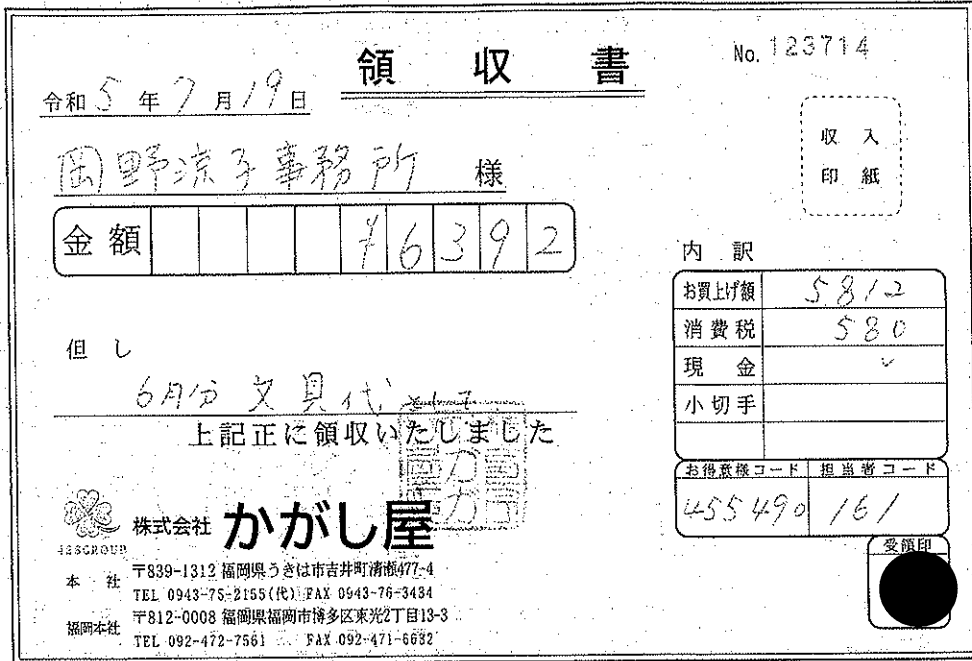 領収書
No. 123714
令和 5 年 7 月 19 日
収入
印紙
岡野涼子事務所 様
金額 ¥6392
内訳
お買上げ額 5812
消費税 580
現金 ✓
小切手
但し
6月分 文具代 として
上記正に領収いたしました
お得意様コード 担当者コード
455490 161
受領印
428GROUP
株式会社 かがし屋
本社 〒839-1312 福岡県うきは市吉井町清瀬477-4
TEL 0943-75-2155(代) FAX 0943-76-3434
福岡本社 〒812-0008 福岡県福岡市博多区東光2丁目13-3
TEL 092-472-7561 FAX 092-471-6632